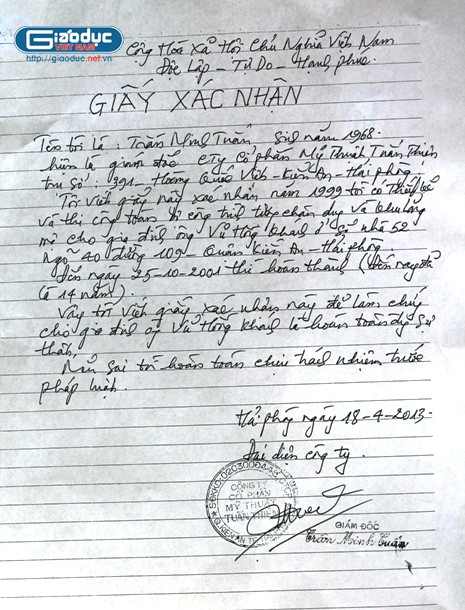 Giáodục
VIỆT NAM
http://giaoduc.net.vn
Cộng Hòa Xã Hội Chủ Nghĩa Việt Nam
Độc Lập - Tự Do - Hạnh phúc.
GIẤY XÁC NHẬN
Tên tôi là : Trần Minh Tuấn Sinh năm 1968.
hiện là giám đốc CTy Cổ phần Mỹ Thuật Tuấn Thiên
trụ sở : 391. Hoàng Quốc Việt - Kiến An - Hải phòng
Tôi viết giấy này xác nhận năm 1999 tôi có thiết kế
và thi công toàn bộ công trình tượng chân dung và khu lăng
mộ cho gia đình ông Vũ Hồng Khanh ở số nhà 52
ngõ 40 đường 109 - Quận Kiến An - Hải phòng
Đến ngày 25-10-2001 thì hoàn thành (đến nay đã
là 14 năm)
Vậy tôi viết giấy xác nhận này để làm chứng
cho gia đình ông Vũ Hồng Khanh là hoàn toàn đúng sự
thật,
Nếu sai tôi hoàn toàn chịu trách nhiệm trước
pháp luật.
Hải phòng ngày 18-4-2013.
Đại diện công ty.
CÔNG TY
CỔ PHẦN
MỸ THUẬT
TUẤN THIÊN
GIÁM ĐỐC
Trần Minh Tuấn